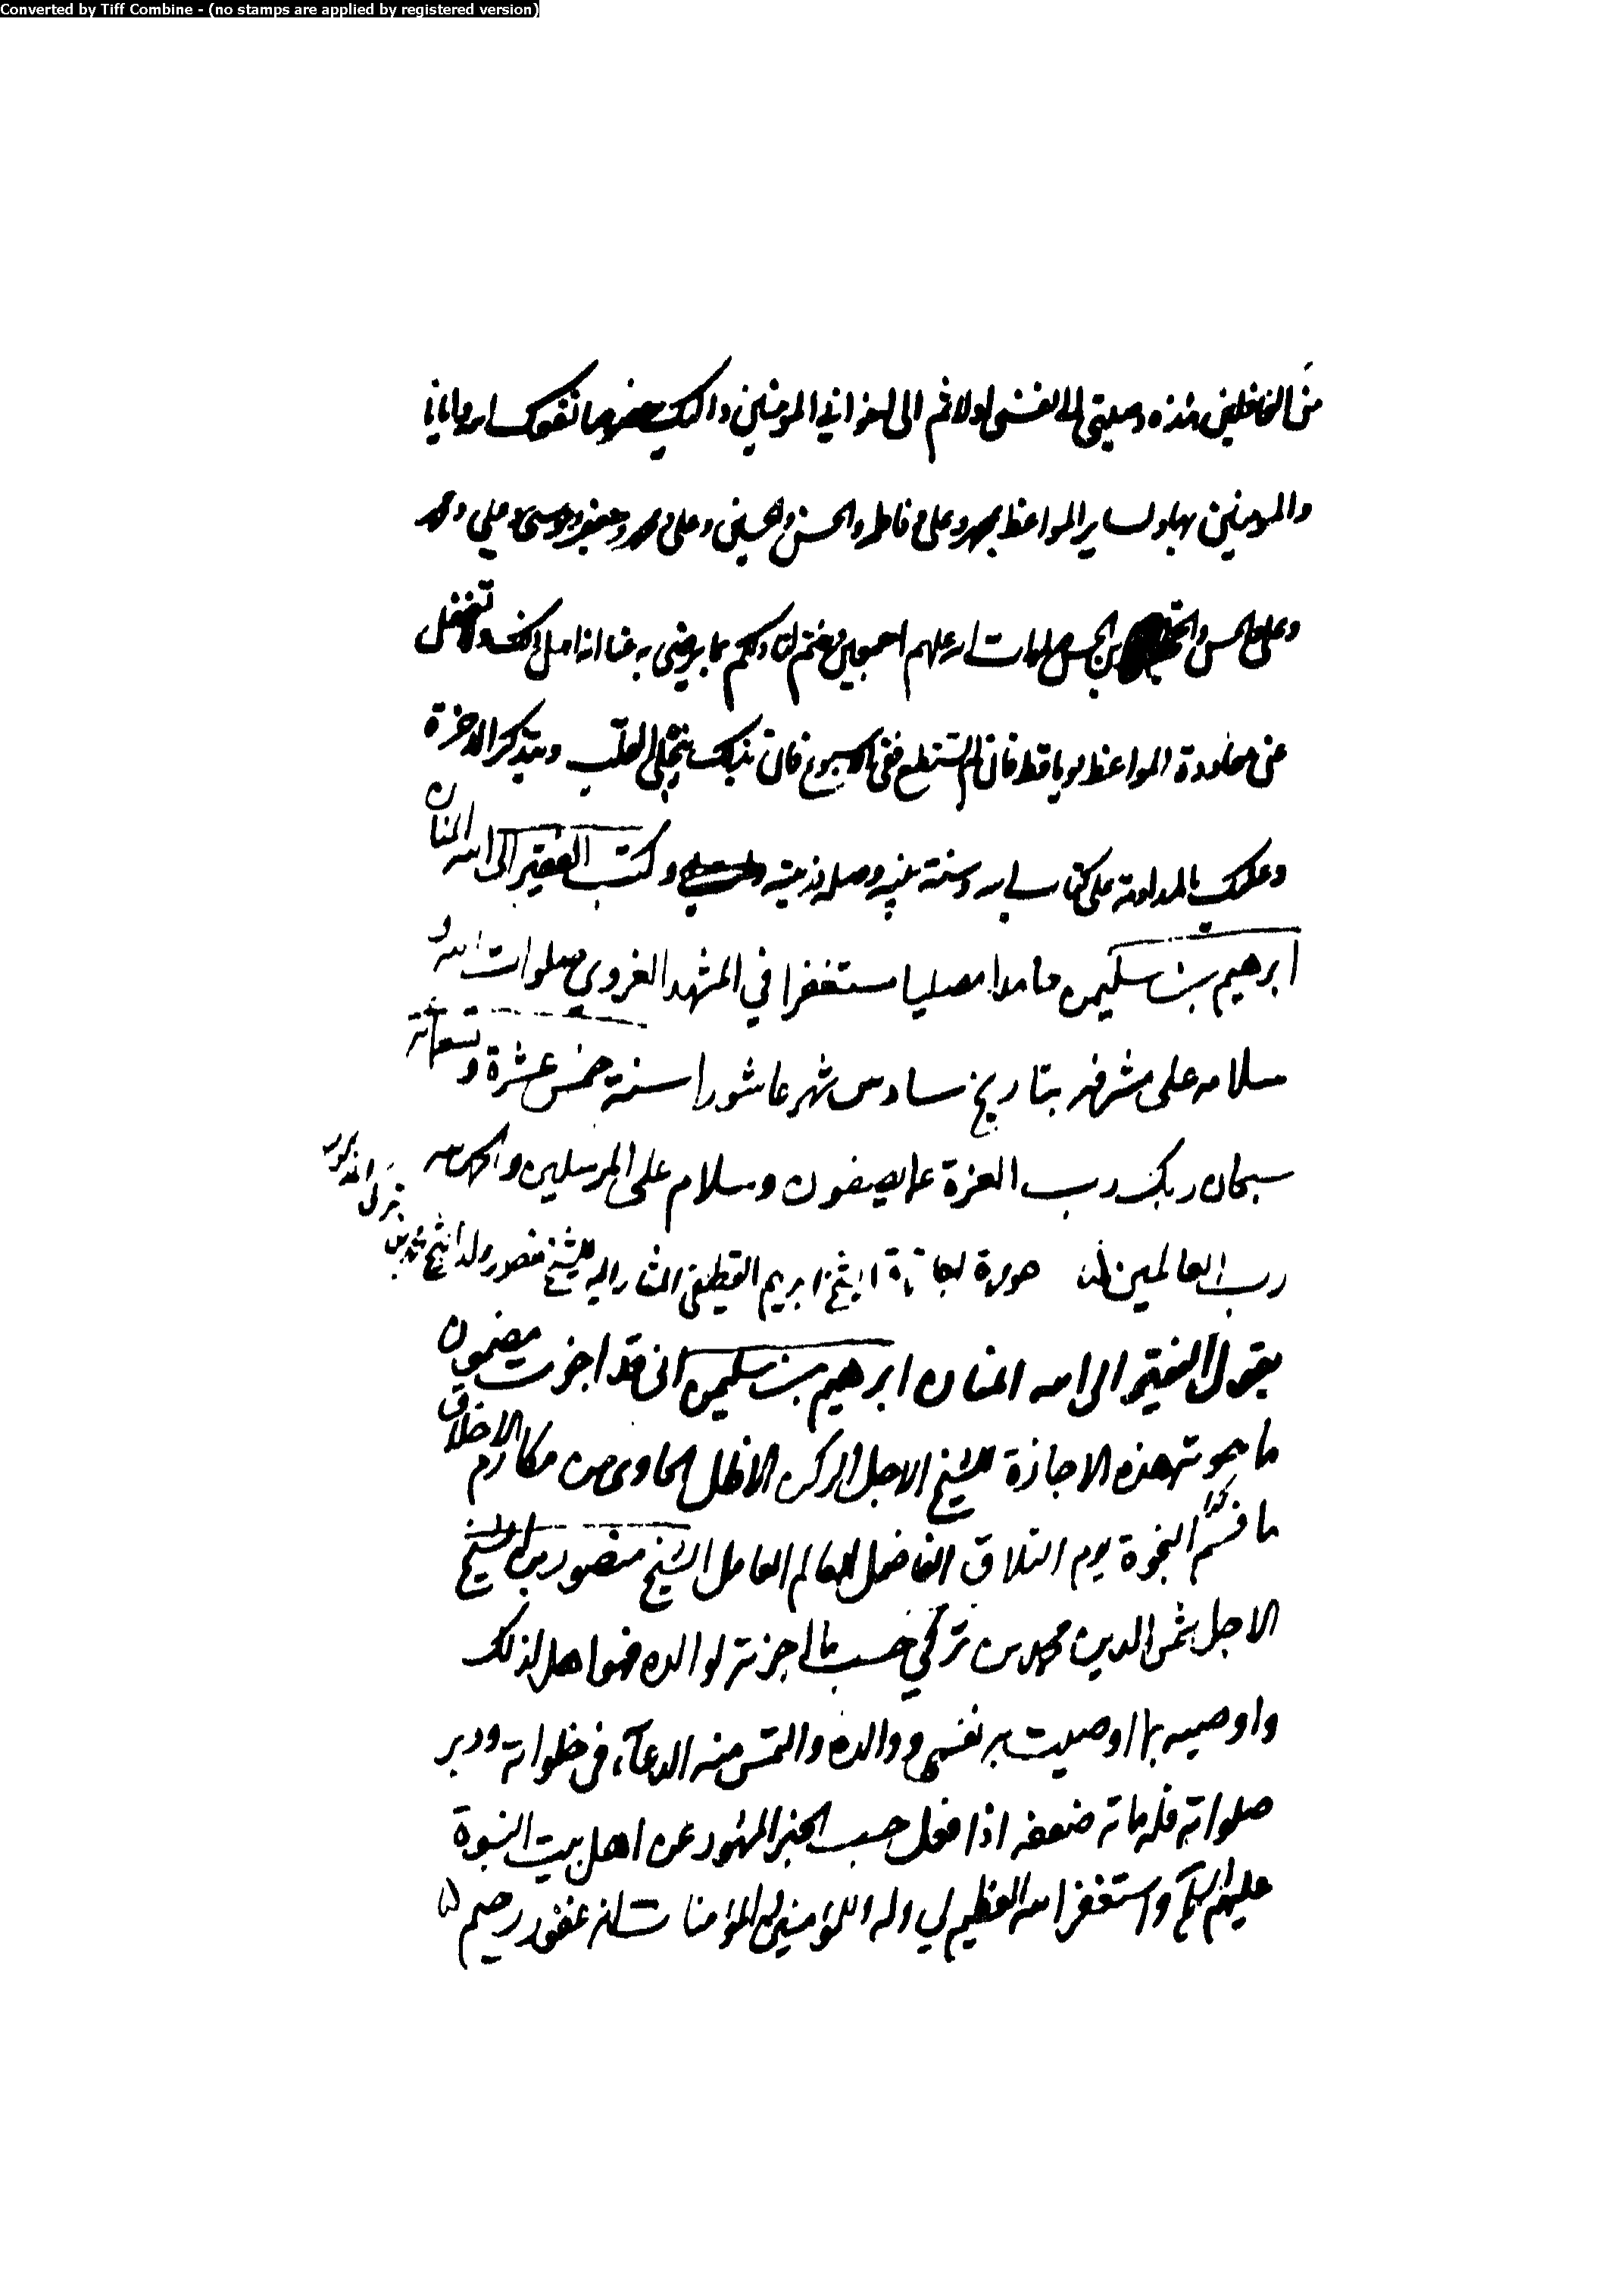 Converted by Tiff Combine - (no stamps are applied by registered version)
من الغافلين هذه وصيتي الى نفسي اولا ثم الى اخواني المؤمنين واليك نفعك الله وايانا
والمؤمنين بها وبساير المواعظ بمحمد وعلي وفاطمة والحسن والحسين وعلي ومحمد وجعفر وموسى وعلي ومحمد
وعلي والحسن بن الحسن صلوات الله عليهم اجمعين وختم لنا ولكم بما يرضى به عنا انه اهل ذلك ولا تغفل
عن معاودة المواعظ يوما قط فان لم تستطع ففي الاسبوع فان بذلك ينجلي القلب ويتذكر الاخرة
وعليك بالمداومة على كتاب الله وسنة نبيه وصلة ذريته وكتب الفقير الى الله المنان
ابرهيم بن سليمن حامدا مصليا مستغفرا في المشهد الغروي صلوات الله و
سلامه على مشرفه بتاريخ سادس شهر عاشورا سنة خمس عشرة وتسعمائة
سبحان ربك رب العزة عما يصفون وسلام على المرسلين والحمد لله
رب العالمين صورة اجازة الشيخ ابرهيم القطيفي المشار اليه للشيخ منصور ولد الشيخ محمد بن تركي المذكور
يقول الفقير الى الله المنان ابرهيم بن سليمن اني قد اجزت مضمون
ما حوته هذه الاجازة للشيخ الاجل الركن الاظل الحاوي من مكارم الاخلاق
ما النجوة يوم التلاق الفاضل العالم العامل الشيخ منصور بن الشيخ
الاجل شمس الدين محمد بن تركي حسب ما اجزته لوالده فهو اهل لذلك
واوصيه بما اوصيت به نفسي ووالده والتمس منه الدعاء في خلواته ودبر
صلواته فله مائة ضعفه اذا فعل حسب الخبر المشهور عن اهل بيت النبوة
عليهم السلام واستغفر الله العظيم لي وله وللمؤمنين والمؤمنات انه غفور رحيم